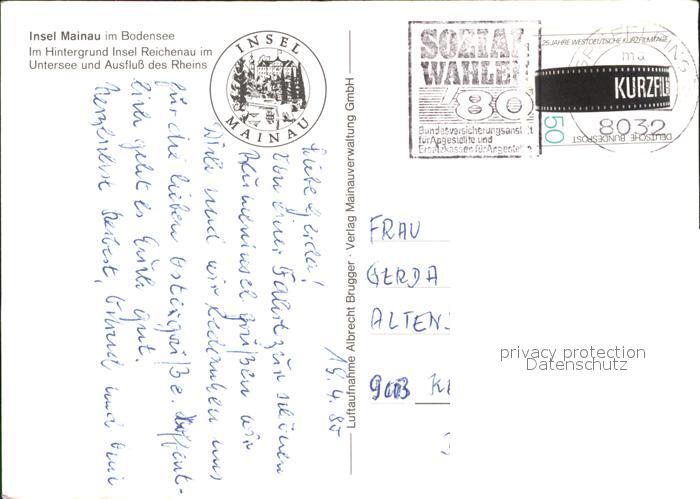 Insel Mainau im Bodensee
Im Hintergrund Insel Reichenau im
Untersee und Ausfluß des Rheins
INSEL
MAINAU
19.4.80
Liebe Gerda!
Von einer Fahrt zur schönen
Blumeninsel grüßen wir
Dich und wir bedanken uns
für die lieben Ostergrüße. Hoffent-
lich geht es Euch gut.
Herzlichst Herbert, Erhard und
Luftaufnahme Albrecht Brugger · Verlag Mainauverwaltung GmbH
SOZIAL
WAHLEN
'80
Bundesversicherungsanst
für Angestellte und
Ersatzkassen für Angestellte
25 JAHRE WESTDEUTSCHE KURZFILMTAGE
KURZFIL
50
DEUTSCHE BUNDESPOST
8032
ma
FRAU
GERDA
ALTEN
privacy protection
Datenschutz